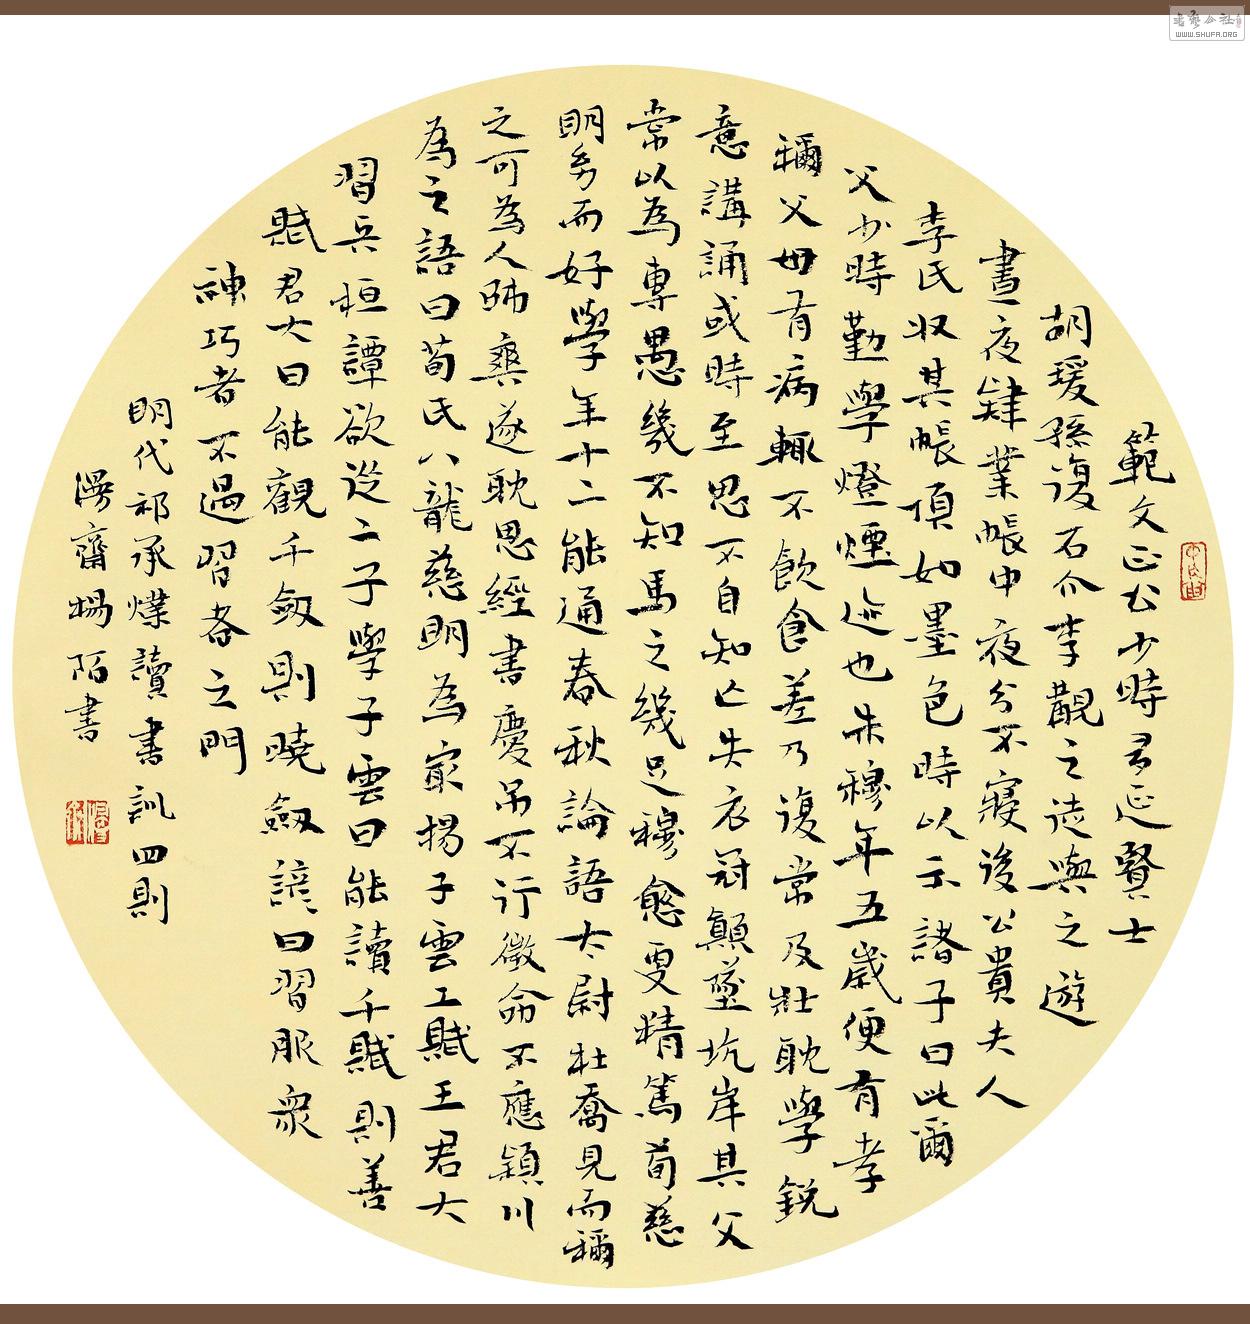 範文正公少時多延賢士
胡瑗孫復石介李覯之徒與之遊
晝夜肄業帳中夜分不寢後公貴夫人
李氏收其帳頂如墨色時以示諸子曰此爾
父少時勤學燈煙迹也朱穆年五歲便有孝
稱父毋有病輒不飲食差乃復常及壯耽學銳
意講誦或時至思不自知亡失衣冠顛墜坑岸其父
常以為專愚幾不知馬之幾足穆愈更精篤荀慈
明㓜而好學年十二能通春秋論語太尉杜喬見而稱
之可為人師爽遂耽思經書慶吊不行徵命不應穎川
為之語曰荀氏八龍慈明為最揚子雲工賦王君大
習兵桓譚欲從二子學子雲曰能讀千賦則善
賦君大曰能觀千劔則曉劔諺曰習服衆
神巧者不過習者之門
明代祁承㸁讀書訓四則
漫齋楊陌書
WWW.SHUFA.ORG